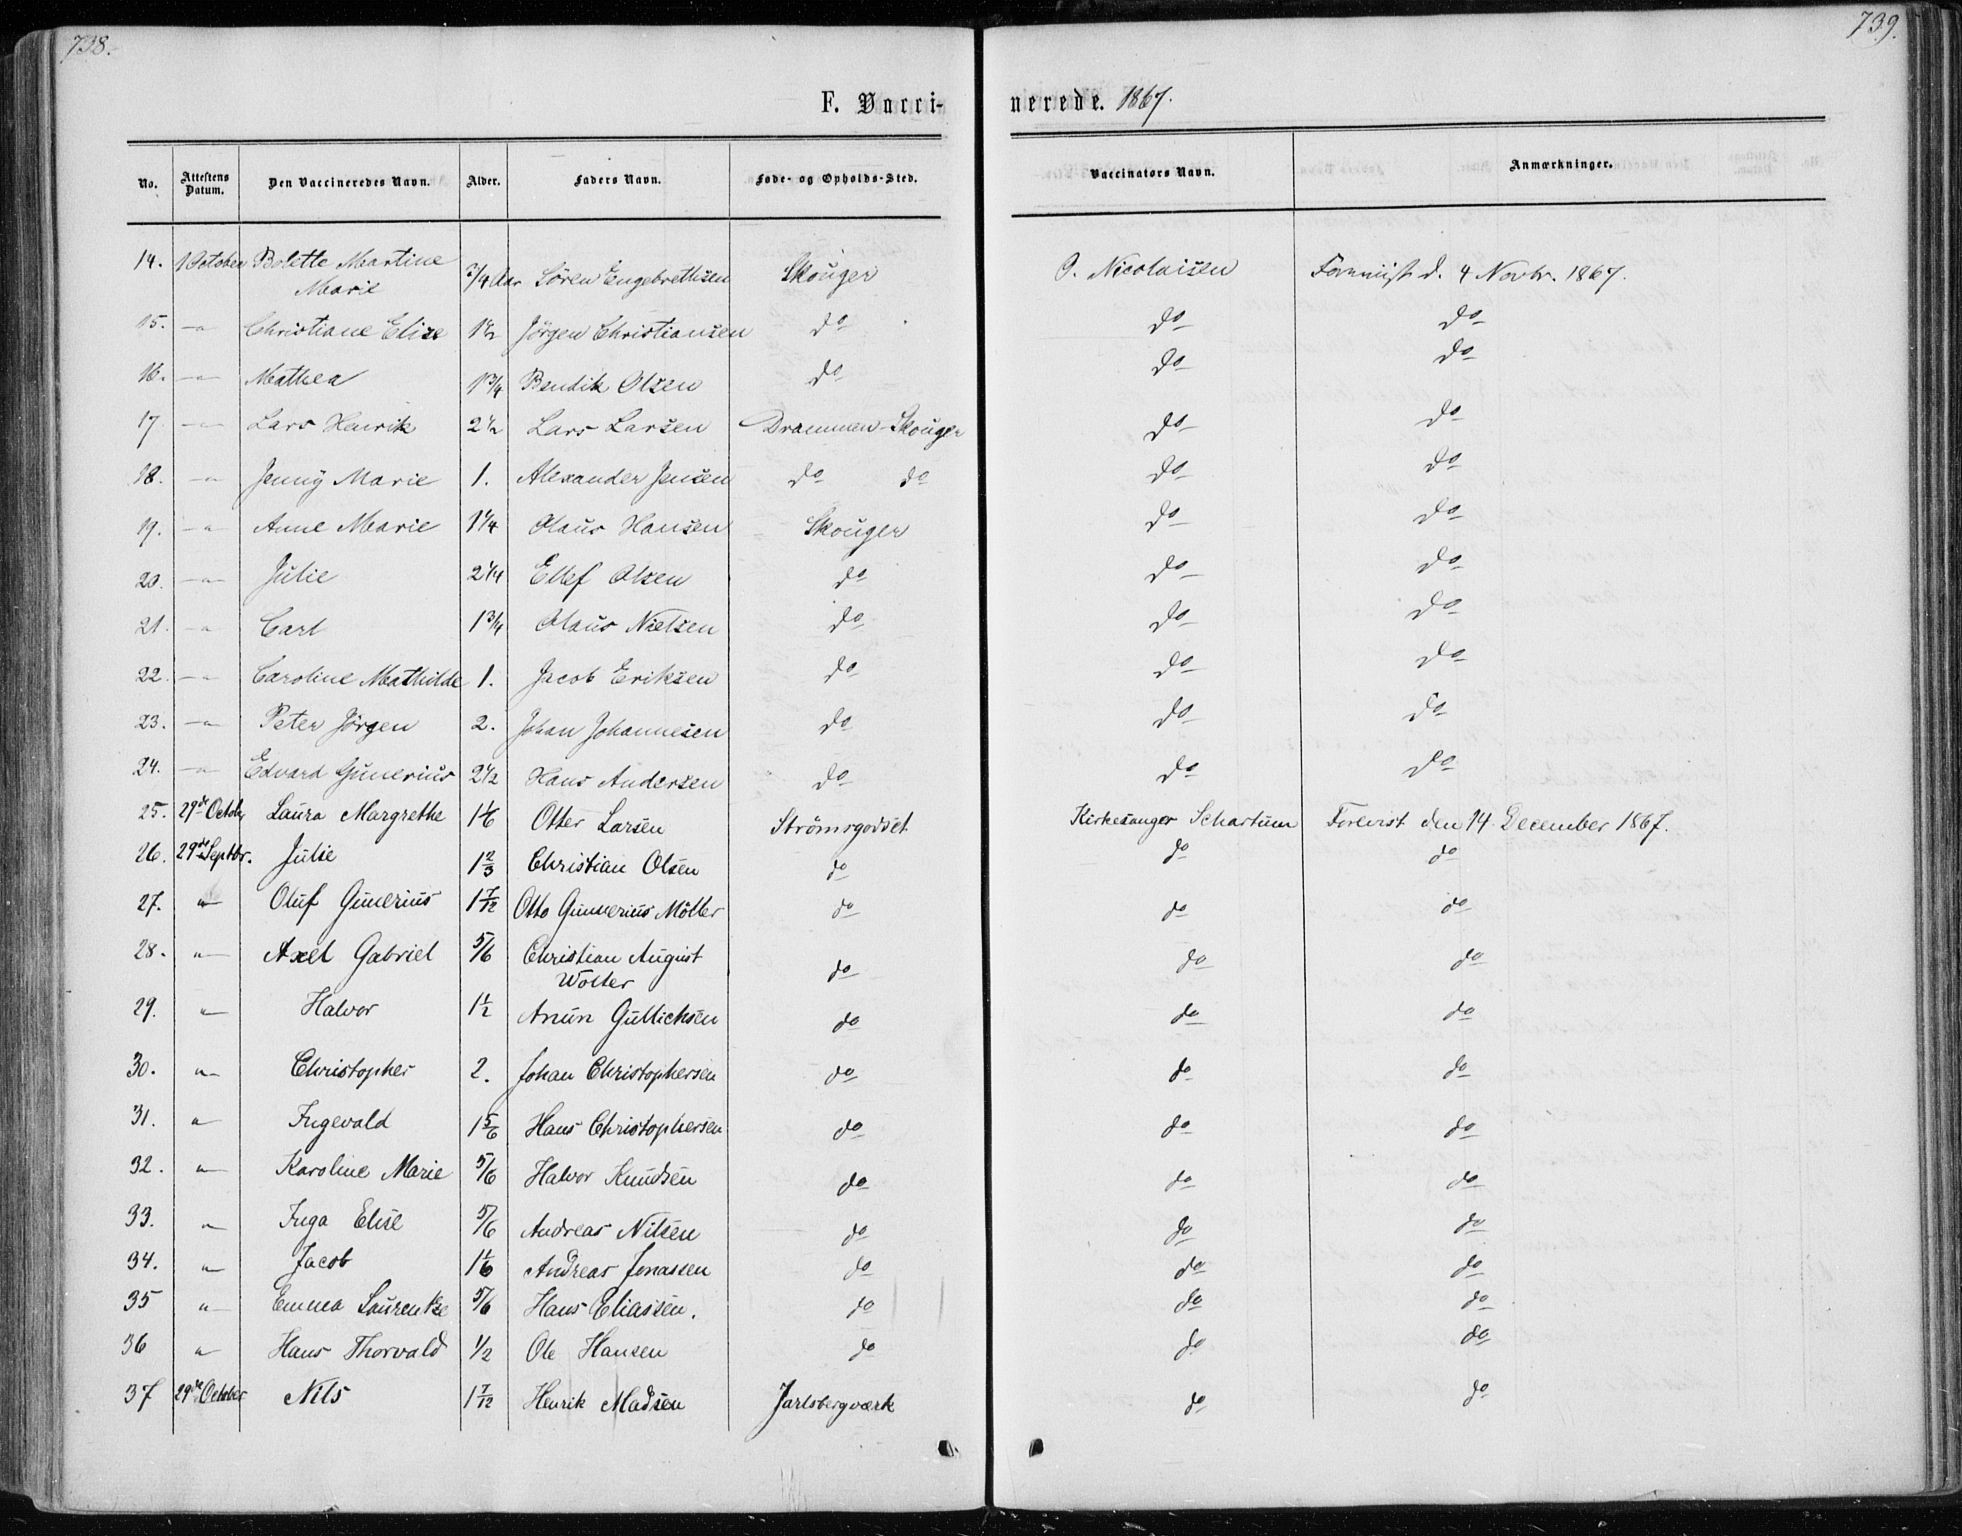 738.
739.
F. Vacci-
nerede. 1867.
No. Attestens Datum. Den Vaccineredes Navn. Alder. Faders Navn. Føde- og Opholds-Sted. Vaccinators Navn. Anmærkninger.
14. 1 October Bolette Martine Marie 3/4 Aar Sören Engebrethsen Skouger O. Nicolaisen Foreviist d. 4 Novbr. 1867.
15. -"- Christiane Elise 1½ Jörgen Christiansen do do do
16. -"- Mathea 1¾ Bendik Olsen do do do
17 -"- Lars Henrik 2½ Lars Larsen Drammen-Skouger do do
18. -"- Jenny Marie 1. Alexander Jensen do do do do
19. -"- Anne Marie 1¼ Olaus Hansen Skouger do do
20. -"- Julie 2¼ Ellef Olsen do do do
21. -"- Carl 1¾ Olaus Nielsen do do do
22. -"- Caroline Mathilde 1. Jacob Eriksen do do do
23. -"- Peter Jörgen 2. Johan Johannesen do do do
24. -"- Edvard Gunerius 2½ Hans Andersen do do do
25. 29de October Laura Margrethe 1 1/6 Otter Larsen Strömsgodset Kirkesanger Schartum Forevist den 14 December 1867.
26. 29de Septbr. Julie 1 2/3 Christian Olsen do do do
27. " Oluf Gunerius 1 7/12 Otto Gunnerius Möller do do do
28. " Axel Gabriel 5/6 Christian August Wölter do do do
29. " Halvor 1½ Anun Gullichsen do do do
30. " Christopher 2. Johan Christophersen do do do
31. " Ingevald 1 5/6 Hans Christophersen do do do
32. " Karoline Marie 5/6 Halvor Knudsen do do do
33. " Inga Elise 5/6 Andreas Nilsen do do do
34. " Jacob 1 1/6 Andreas Jonassen do do do
35 " Emma Laurentse 5/6 Hans Eliassen. do do do
36 " Hans Thorvald 1/2 Ole Hansen do do do
37 29de October Nils 1 7/12 Henrik Madsen Jarlsbergværk do do